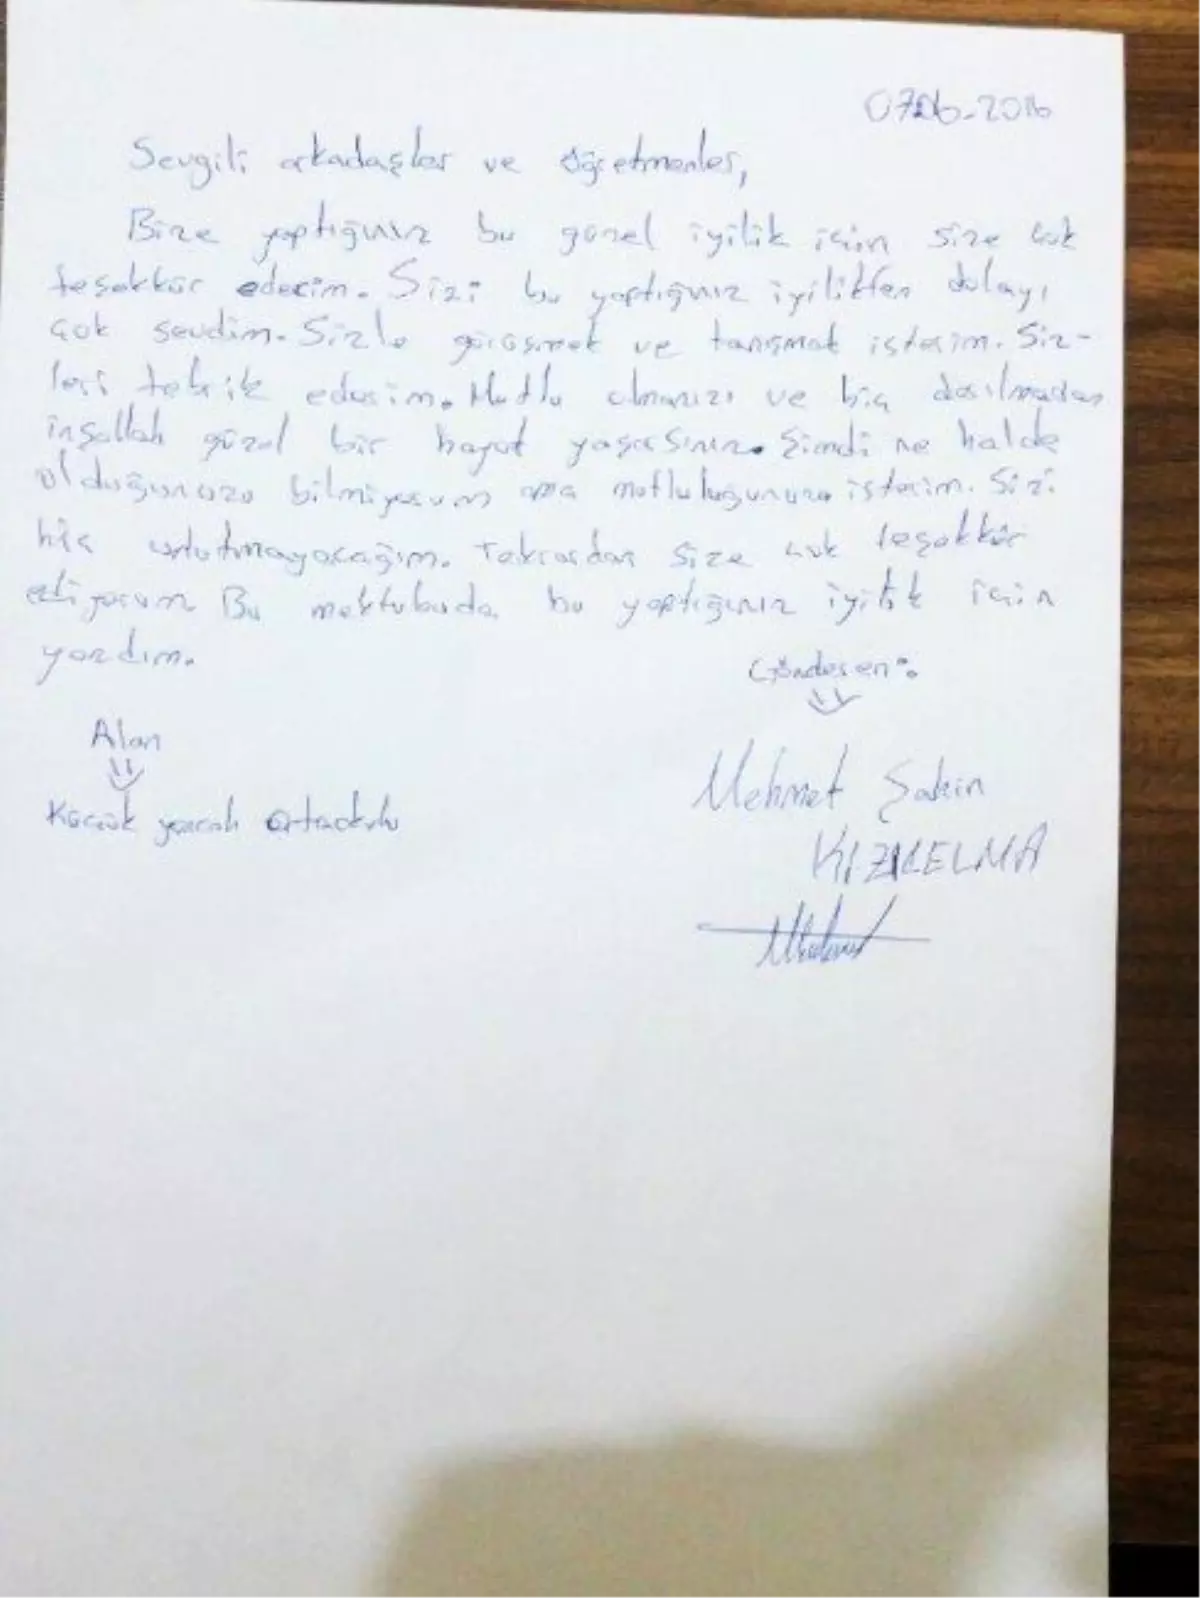 07.06.2016
Sevgili arkadaşlar ve öğretmenler,
Bize yaptığınız bu güzel iyilik için size çok
teşekkür ederim. Sizi bu yaptığınız iyilikten dolayı
çok sevdim. Sizle görüşmek ve tanışmak isterim. Siz-
leri tebrik ederim. Mutlu olmanızı ve hiç darılmadan
inşallah güzel bir hayat yaşarsınız. Şimdi ne halde
olduğunuzu bilmiyorum ama mutluluğunuzu isterim. Sizi
hiç unutmayacağım. Tekrardan size çok teşekkür
ediyorum Bu mektubuda bu yaptığınız iyilik için
yazdım.
Gönderen:
Alan
Mehmet Şakir
Küçük yoncalı Ortaokulu
KIZILELMA